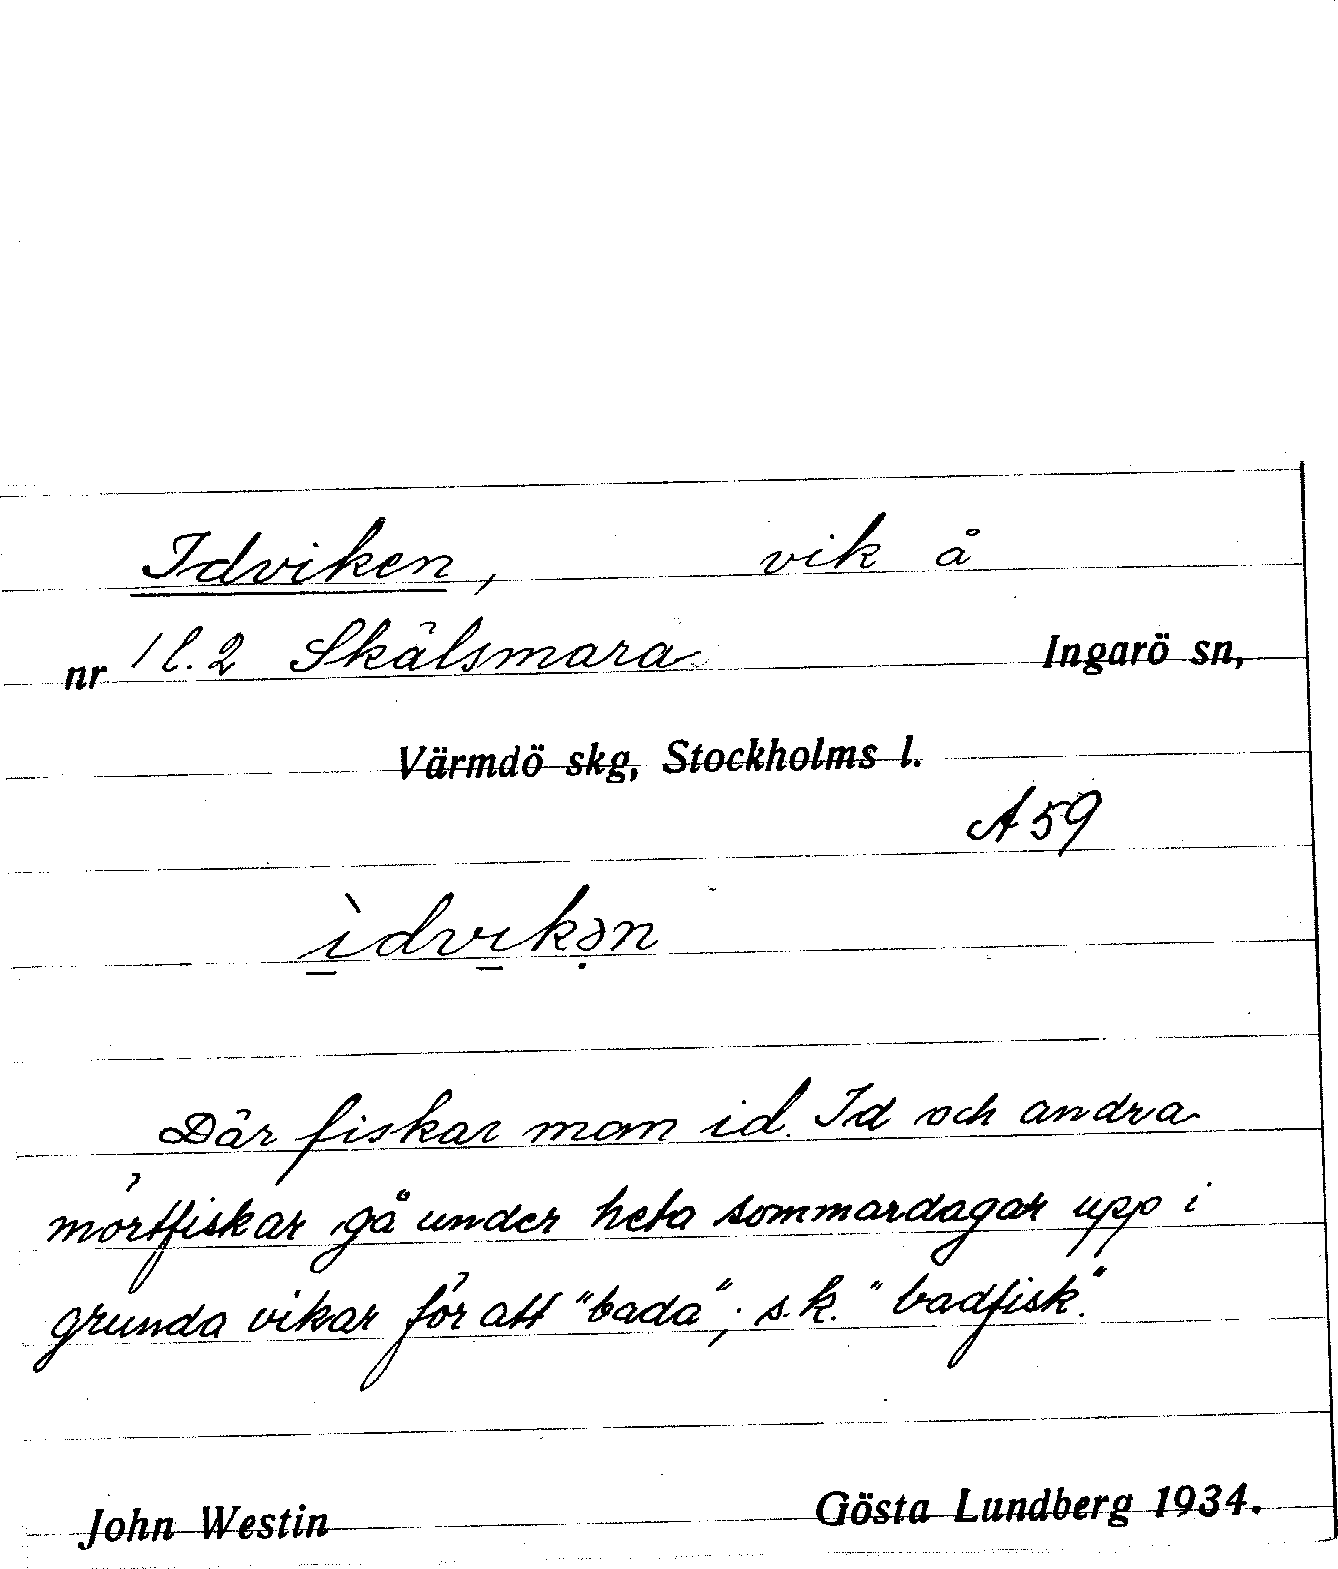 Idviken, vik å
nr 1 l. 2 Skälsmara Ingarö sn,
Värmdö skg, Stockholms l.
A 59
ìdvikən
Där fiskar man id. Id och andra
mörtfiskar gå under heta sommardagar upp i
grunda vikar för att "bada"; s.k. "badfisk".
John Westin Gösta Lundberg 1934.